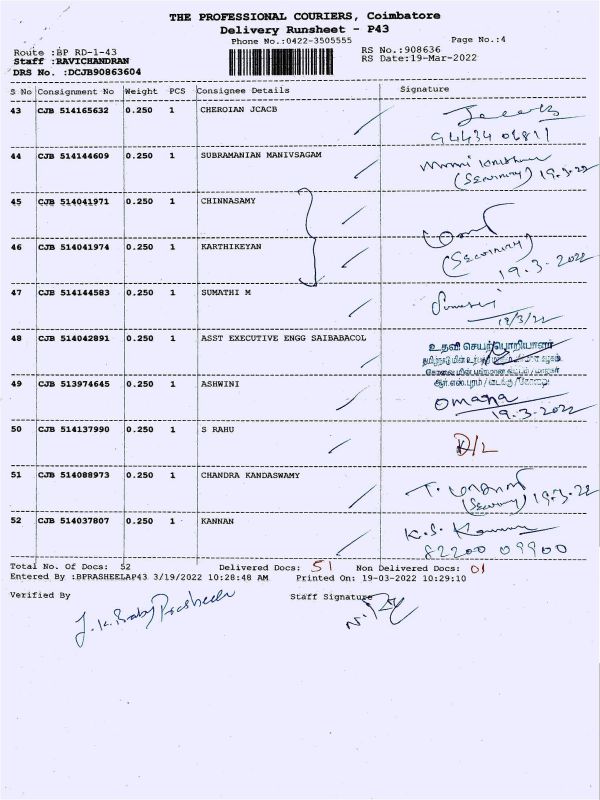 THE PROFESSIONAL COURIERS, Coimbatore
Delivery Runsheet - P43
Phone No.:0422-3505555 Page No.:4
Route :BP RD-1-43 RS No.:908636
Staff :RAVICHANDRAN RS Date:19-Mar-2022
DRS No. :DCJB90863604
S No Consignment No Weight PCS Consignee Details Signature
43 CJB 514165632 0.250 1 CHEROIAN JCACB
94434 06811
44 CJB 514144609 0.250 1 SUBRAMANIAN MANIVSAGAM
(Security) 19.3.22
45 CJB 514041971 0.250 1 CHINNASAMY
46 CJB 514041974 0.250 1 KARTHIKEYAN
(Security)
19.3.2022
47 CJB 514144583 0.250 1 SUMATHI M
19/3/22
48 CJB 514042891 0.250 1 ASST EXECUTIVE ENGG SAIBABACOL
உதவி செயற்பொறியாளர்
49 CJB 513974645 0.250 1 ASHWINI
ஆர்.எஸ்.புரம் / வடக்கு / கோவை
Omana
19.3.2022
50 CJB 514137990 0.250 1 S RAHU D/L
51 CJB 514088973 0.250 1 CHANDRA KANDASWAMY
(Security) 19.3.22
52 CJB 514037807 0.250 1 KANNAN K.S. Kannan
82200 09900
Total No. Of Docs: 52 Delivered Docs: 51 Non Delivered Docs: 01
Entered By :BPRASHEELAP43 3/19/2022 10:28:48 AM Printed On: 19-03-2022 10:29:10
Verified By Staff Signature